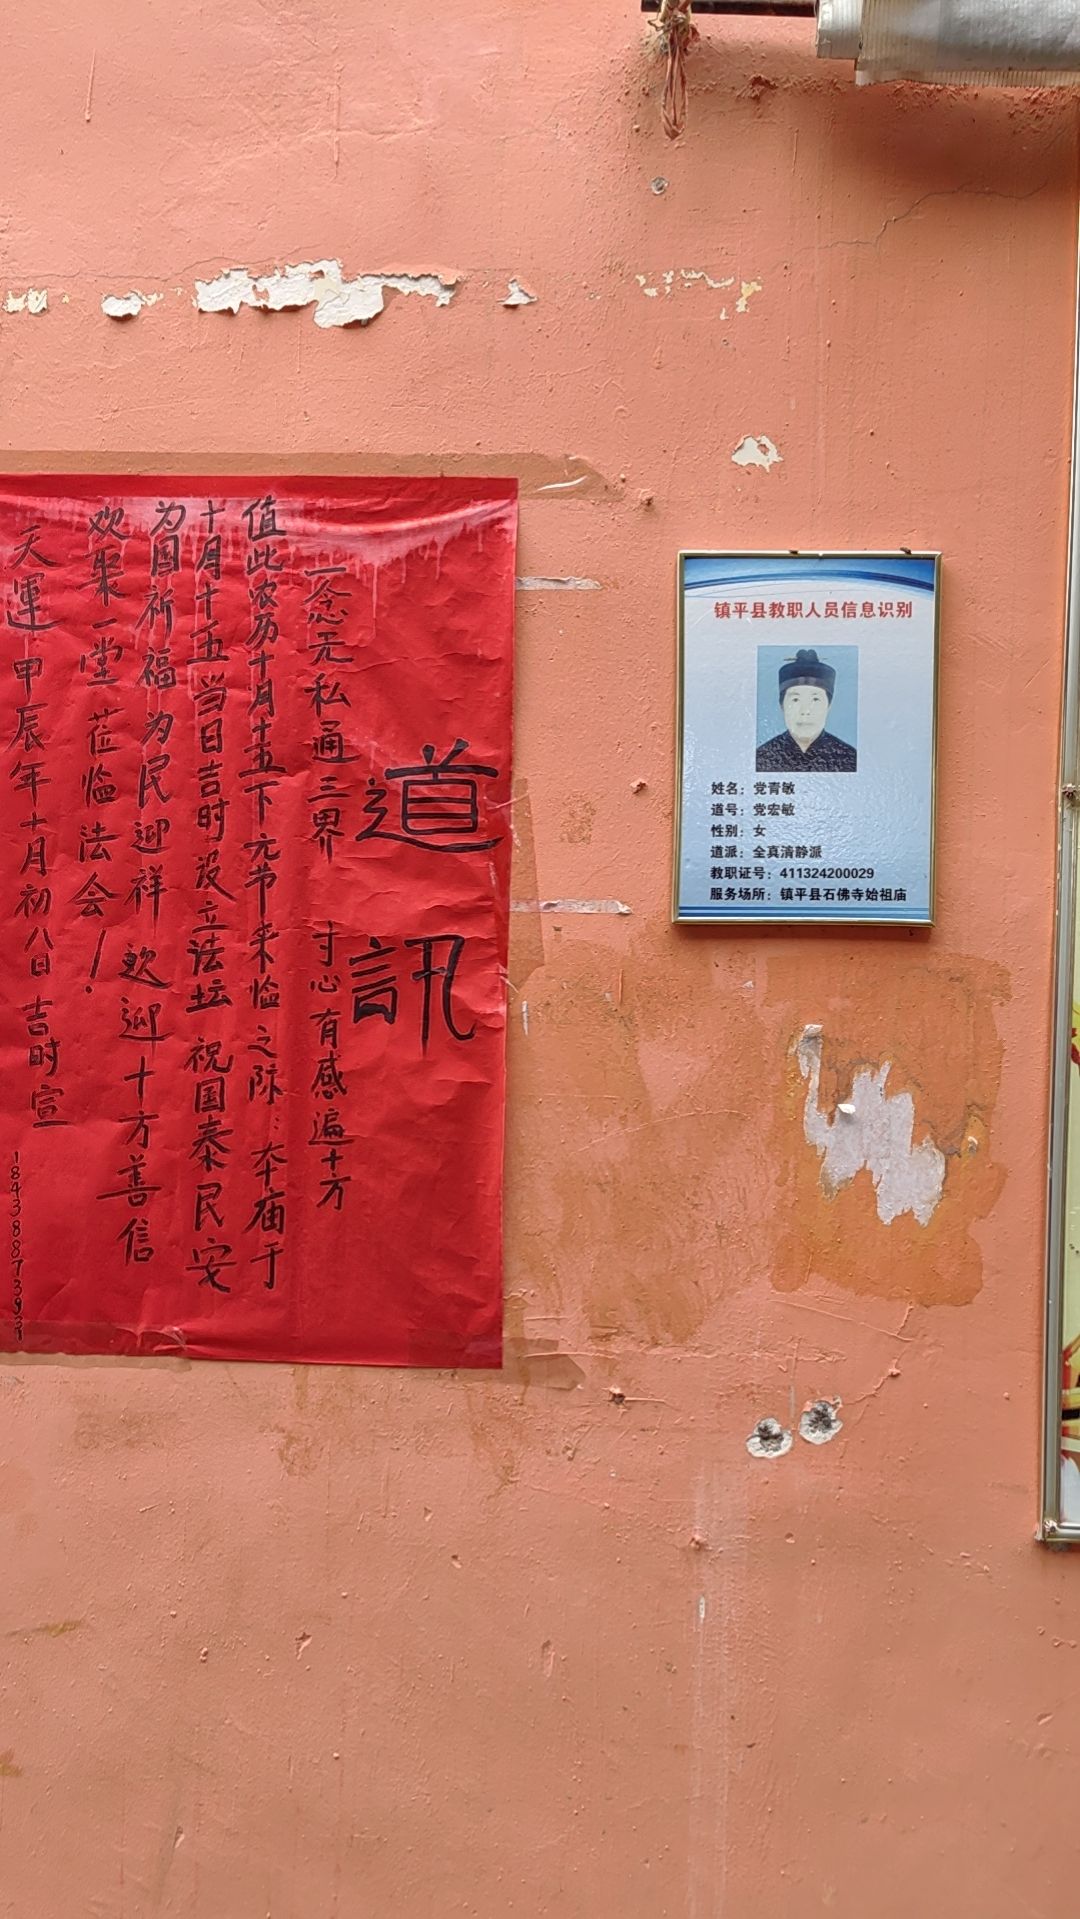 道訊
一念无私通三界 寸心有感遍十方
值此农历十月十五下元节来临之际：本庙于
十月十五当日吉时设立法坛 祝国泰民安
为国祈福为民迎祥 欢迎十方善信
欢聚一堂莅临法会！
天運甲辰年十月初八日吉时宣
18438873939
镇平县教职人员信息识别
姓名：党青敏
道号：党宏敏
性别：女
道派：全真清静派
教职证号：411324200029
服务场所：镇平县石佛寺始祖庙